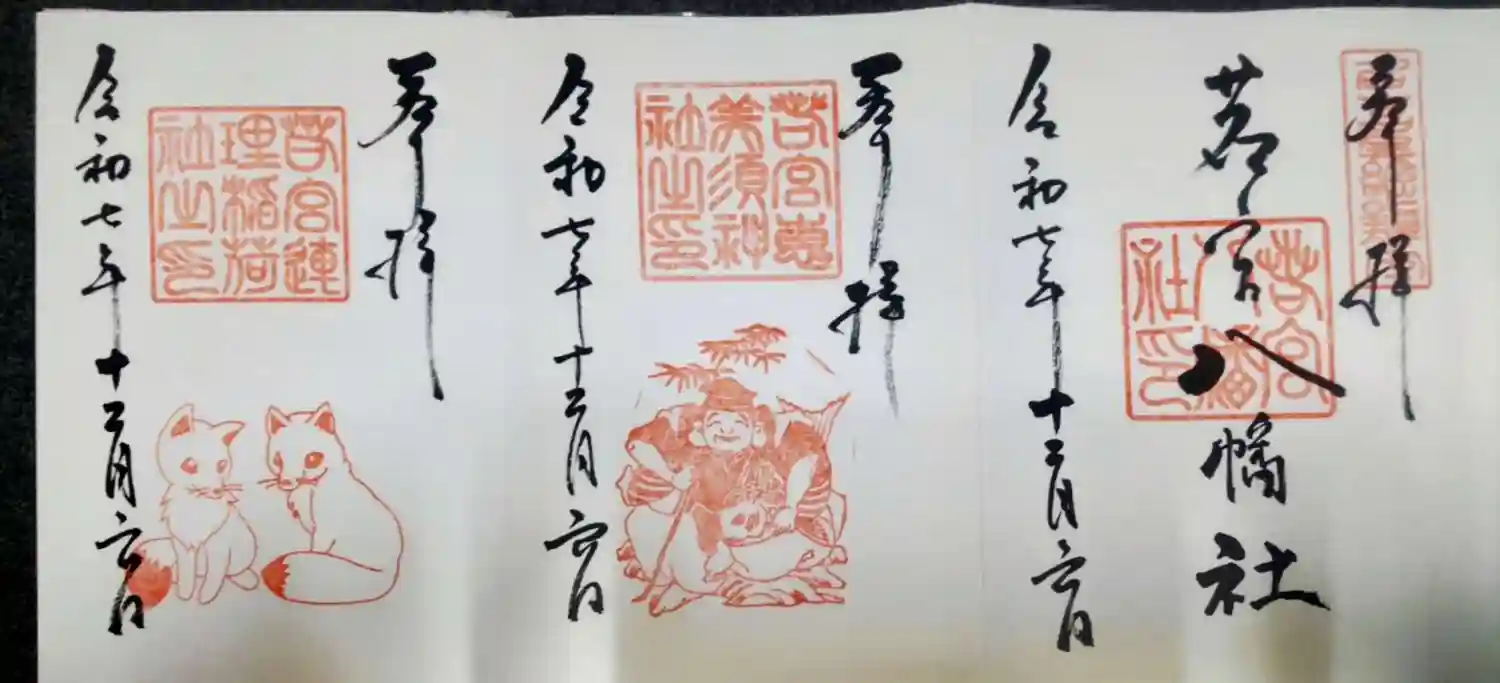 奉拝
若宮八幡社
若宮
八幡
社印
令和七年十二月六日
奉拝
若宮恵
美須神
社之印
令和七年十二月六日
奉拝
若宮連
理稲荷
社之印
令和七年十二月六日